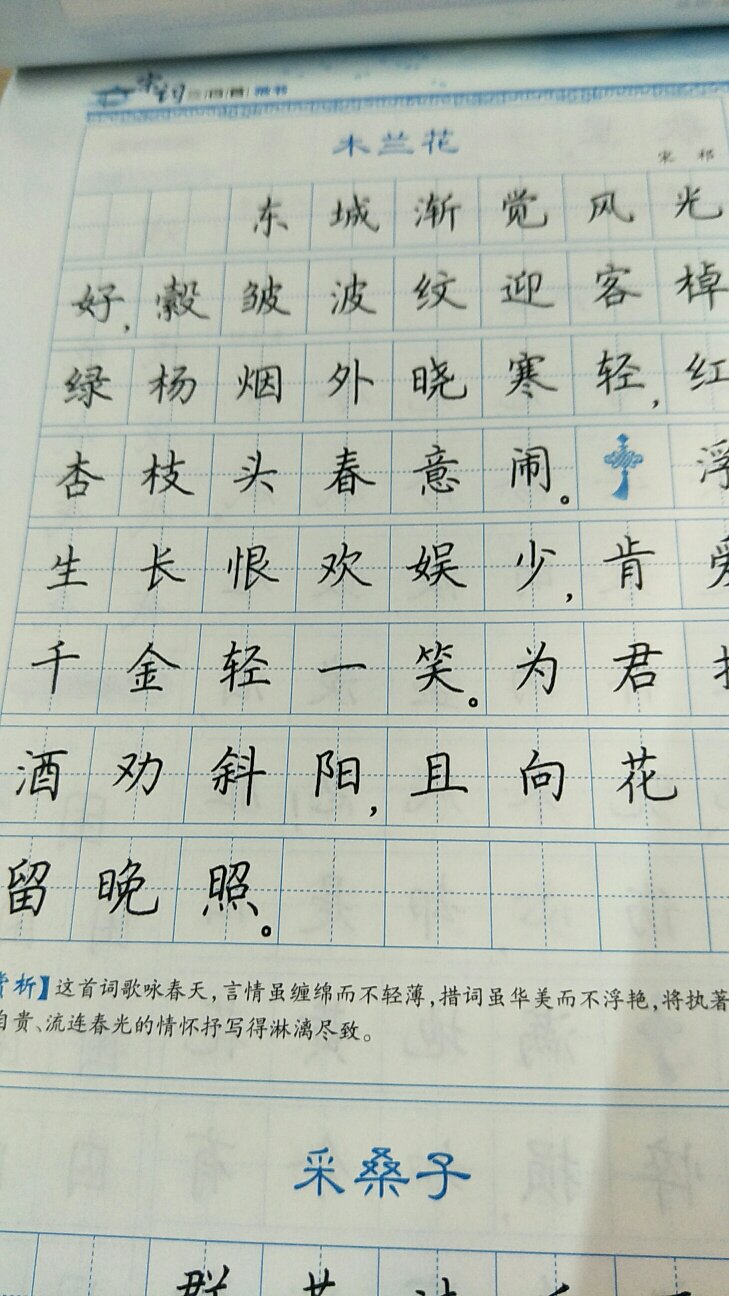 宋词三百首 楷书
木兰花
宋 祁
东城渐觉风光
好,縠皱波纹迎客棹
绿杨烟外晓寒轻,红
杏枝头春意闹。浮
生长恨欢娱少,肯爱
千金轻一笑。为君
酒劝斜阳,且向花
留晚照。
赏析】这首词歌咏春天,言情虽缠绵而不轻薄,措词虽华美而不浮艳,将执著
自贵、流连春光的情怀抒写得淋漓尽致。
采桑子
群芳